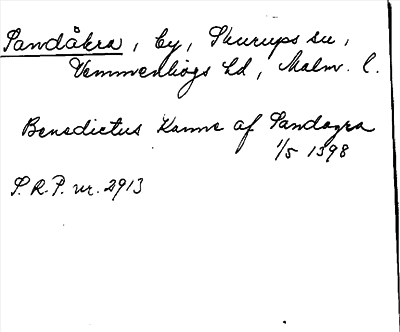 Sandåkra, by, Skurups sn,
Vemmenhögs hd, Malm. l.
Benedictus Kanne af Sandagra
1/5 1398
S.R.P. nr. 2913